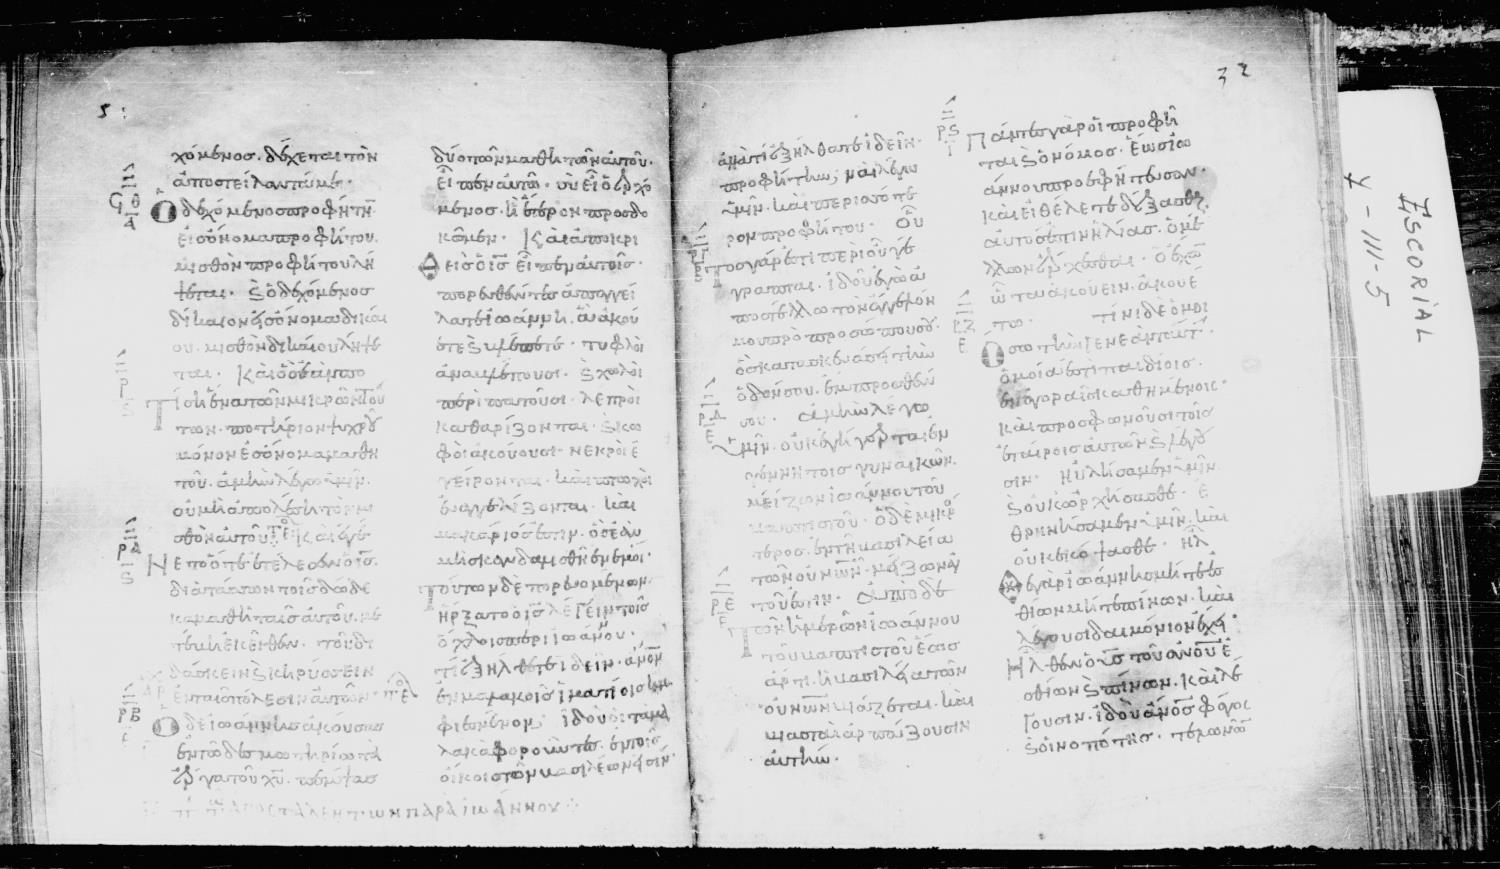 χόμενος. δέχεται τὸν
ἀποστείλαντά με·
Ὁ δεχόμενος προφήτην
εἰς ὄνομα προφήτου.
μισθὸν προφήτου λή
ψεται. καὶ ὁ δεχόμενος
δίκαιον εἰς ὄνομα δικαί
ου. μισθὸν δικαίου λήψε
ται. Καὶ ὃς ἐὰν πο
τίσῃ ἕνα τῶν μικρῶν τού
των. ποτήριον ψυχροῦ
μόνον εἰς ὄνομα μαθη
τοῦ. ἀμὴν λέγω ὑμῖν
οὐ μὴ ἀπολέσῃ τὸν μι
σθὸν αὐτοῦ. Καὶ ἐγέ
νετο ὅτε ἐτέλεσεν ὁ ις
διατάσσων τοῖς δώδε
κα μαθηταῖς αὐτοῦ. με
τέβη ἐκεῖθεν. τοῦ δι
δάσκειν καὶ κηρύσσειν
ἐν ταῖς πόλεσιν αὐτῶν.
Ὁ δὲ ἰωάννης ἀκούσας
ἐν τῷ δεσμωτηρίῳ τὰ
ἔργα τοῦ χυ. πέμψας
ΑΠΟΣΤΑΛΕΝΤΩΝ ΠΑΡΑ ΙΩΑΝΝΟΥ
δύο τῶν μαθητῶν αὐτοῦ.
εἶπεν αὐτῷ. σὺ εἶ ὁ ἐρχό
μενος. ἢ ἕτερον προσδο
κῶμεν. Καὶ ἀποκρι
θεὶς ὁ ις εἶπεν αὐτοῖς.
πορευθέντες ἀπαγγεί
λατε ἰωάννῃ. ἃ ἀκού
ετε καὶ βλέπετε. τυφλοὶ
ἀναβλέπουσι. καὶ χωλοὶ
περιπατοῦσι. λεπροὶ
καθαρίζονται. καὶ κω
φοὶ ἀκούουσι. νεκροὶ ἐ
γείρονται. καὶ πτωχοὶ
εὐαγγελίζονται. καὶ
μακάριός ἐστιν. ὃς ἐὰν
μὴ σκανδαλισθῇ ἐν ἐμοί.
Τούτων δὲ πορευομένων.
ἤρξατο ὁ ις λέγειν τοῖς
ὄχλοις περὶ ἰωάννου.
τί ἐξήλθετε ἰδεῖν. ἄνον
ἐν μαλακοῖς ἱματίοις ἠμ
φιεσμένον; ἰδοὺ οἱ τὰ μα
λακὰ φοροῦντες. ἐν τοῖς
οἴκοις τῶν βασιλέων εἰσίν.
32
ἀλλὰ τί ἐξήλθατε ἰδεῖν.
προφήτην; ναὶ λέγω
ὑμῖν. καὶ περισσότε
ρον προφήτου. Οὗ
τος γάρ ἐστι περὶ οὗ γέ
γραπται. ἰδοὺ ἐγὼ ἀ
ποστέλλω τὸν ἄγγελόν
μου πρὸ προσώπου σου.
ὃς κατασκευάσει τὴν
ὁδόν σου. ἔμπροσθέν
σου. ἀμὴν λέγω
ὑμῖν. οὐκ ἐγήγερται ἐν
γεννητοῖς γυναικῶν.
μείζων ἰωάννου τοῦ
βαπτιστοῦ. ὁ δὲ μικρό
τερος. ἐν τῇ βασιλείᾳ
τῶν οὐνῶν. μείζων αὐ
τοῦ ἐστιν. ἀπὸ δὲ
τῶν ἡμερῶν ἰωάννου
τοῦ βαπτιστοῦ ἕως
ἄρτι. ἡ βασιλεία τῶν
οὐνῶν βιάζεται. καὶ
βιασταὶ ἁρπάζουσιν
αὐτήν.
Πάντες γὰρ οἱ προφῆ
ται καὶ ὁ νόμος. ἕως ἰω
άννου προεφήτευσαν.
καὶ εἰ θέλετε δέξασθαι.
αὐτός ἐστιν ἠλίας. ὁ μέ
λλων ἔρχεσθαι. ὁ ἔχων
ὦτα ἀκούειν. ἀκουέ
τω. τίνι δὲ ὁμοι
ώσω τὴν γενεὰν ταύτην.
ὁμοία ἐστὶ παιδίοις.
ἐν ἀγοραῖς καθημένοις.
καὶ προσφωνοῦσι τοῖς
ἑταίροις αὐτῶν καὶ λέγου
σιν. ηὐλήσαμεν ὑμῖν.
καὶ οὐκ ὠρχήσασθε. ἐ
θρηνήσαμεν ὑμῖν. καὶ
οὐκ ἐκόψασθε. ἦλ
θε γὰρ ἰωάννης μήτε ἐσ
θίων μήτε πίνων. καὶ
λέγουσι δαιμόνιον ἔχει.
Ἦλθεν ὁ υς τοῦ ανου ἐ
σθίων καὶ πίνων. καὶ λέ
γουσιν. ἰδοὺ ανος φάγος
καὶ οἰνοπότης. τελωνῶν
ESCORIAL
Y-III-5